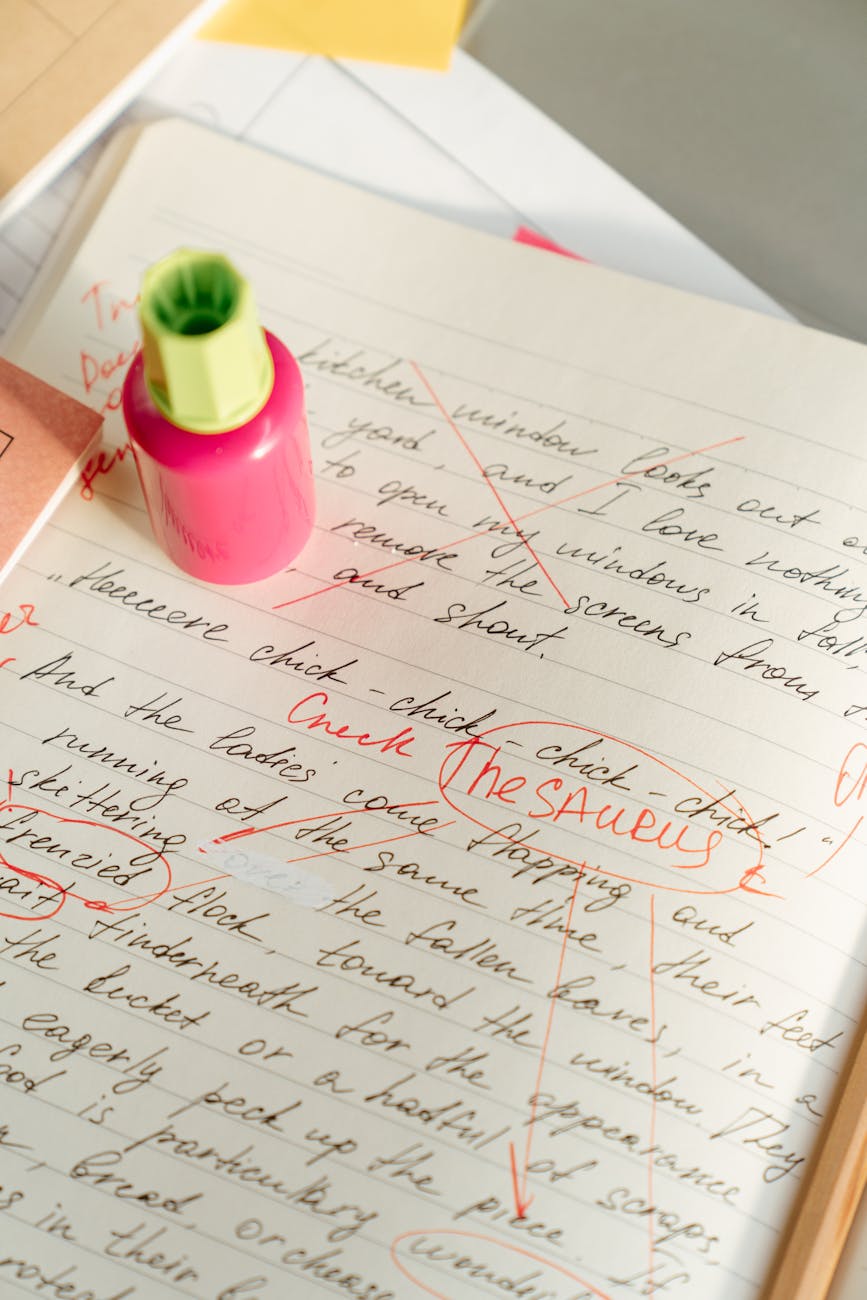 kitchen window looks out
yard, and I love nothing
to open my windows in fall,
remove the screens from
, and shout.
„Heeeeere chick-chick-chick-chick!"
Check TheSAURUS
And the ladies come flapping and
running at the same time, their feet
skittering over the fallen leaves, in a
frenzied flock, toward the window. They
wait tinderheath for the appearance
the bucket or a hatful of scraps,
eagerly peck up the piece. If
is particulary wonderf
bread, or cheese
in their